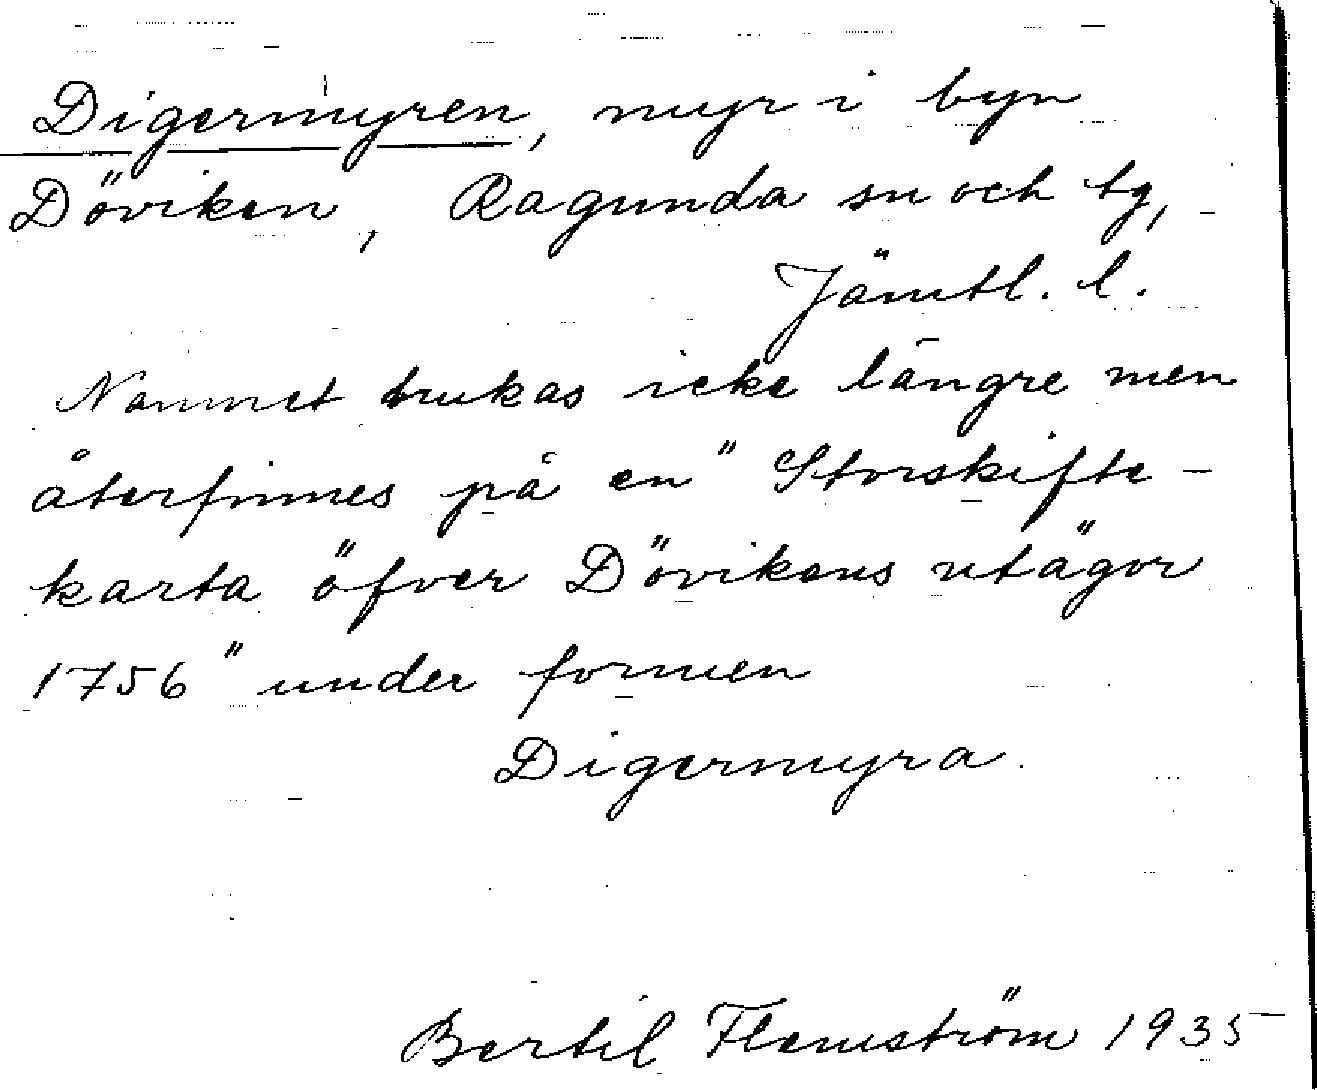 Digermyren, myr i byn
Döviken, Ragunda sn och tg,
Jämtl. l.
Namnet brukas icke längre men
återfinnes på en "Storskifte-
karta öfver Dövikens utägor
1756" under formen
Digermyra.
Bertil Flemström 1935